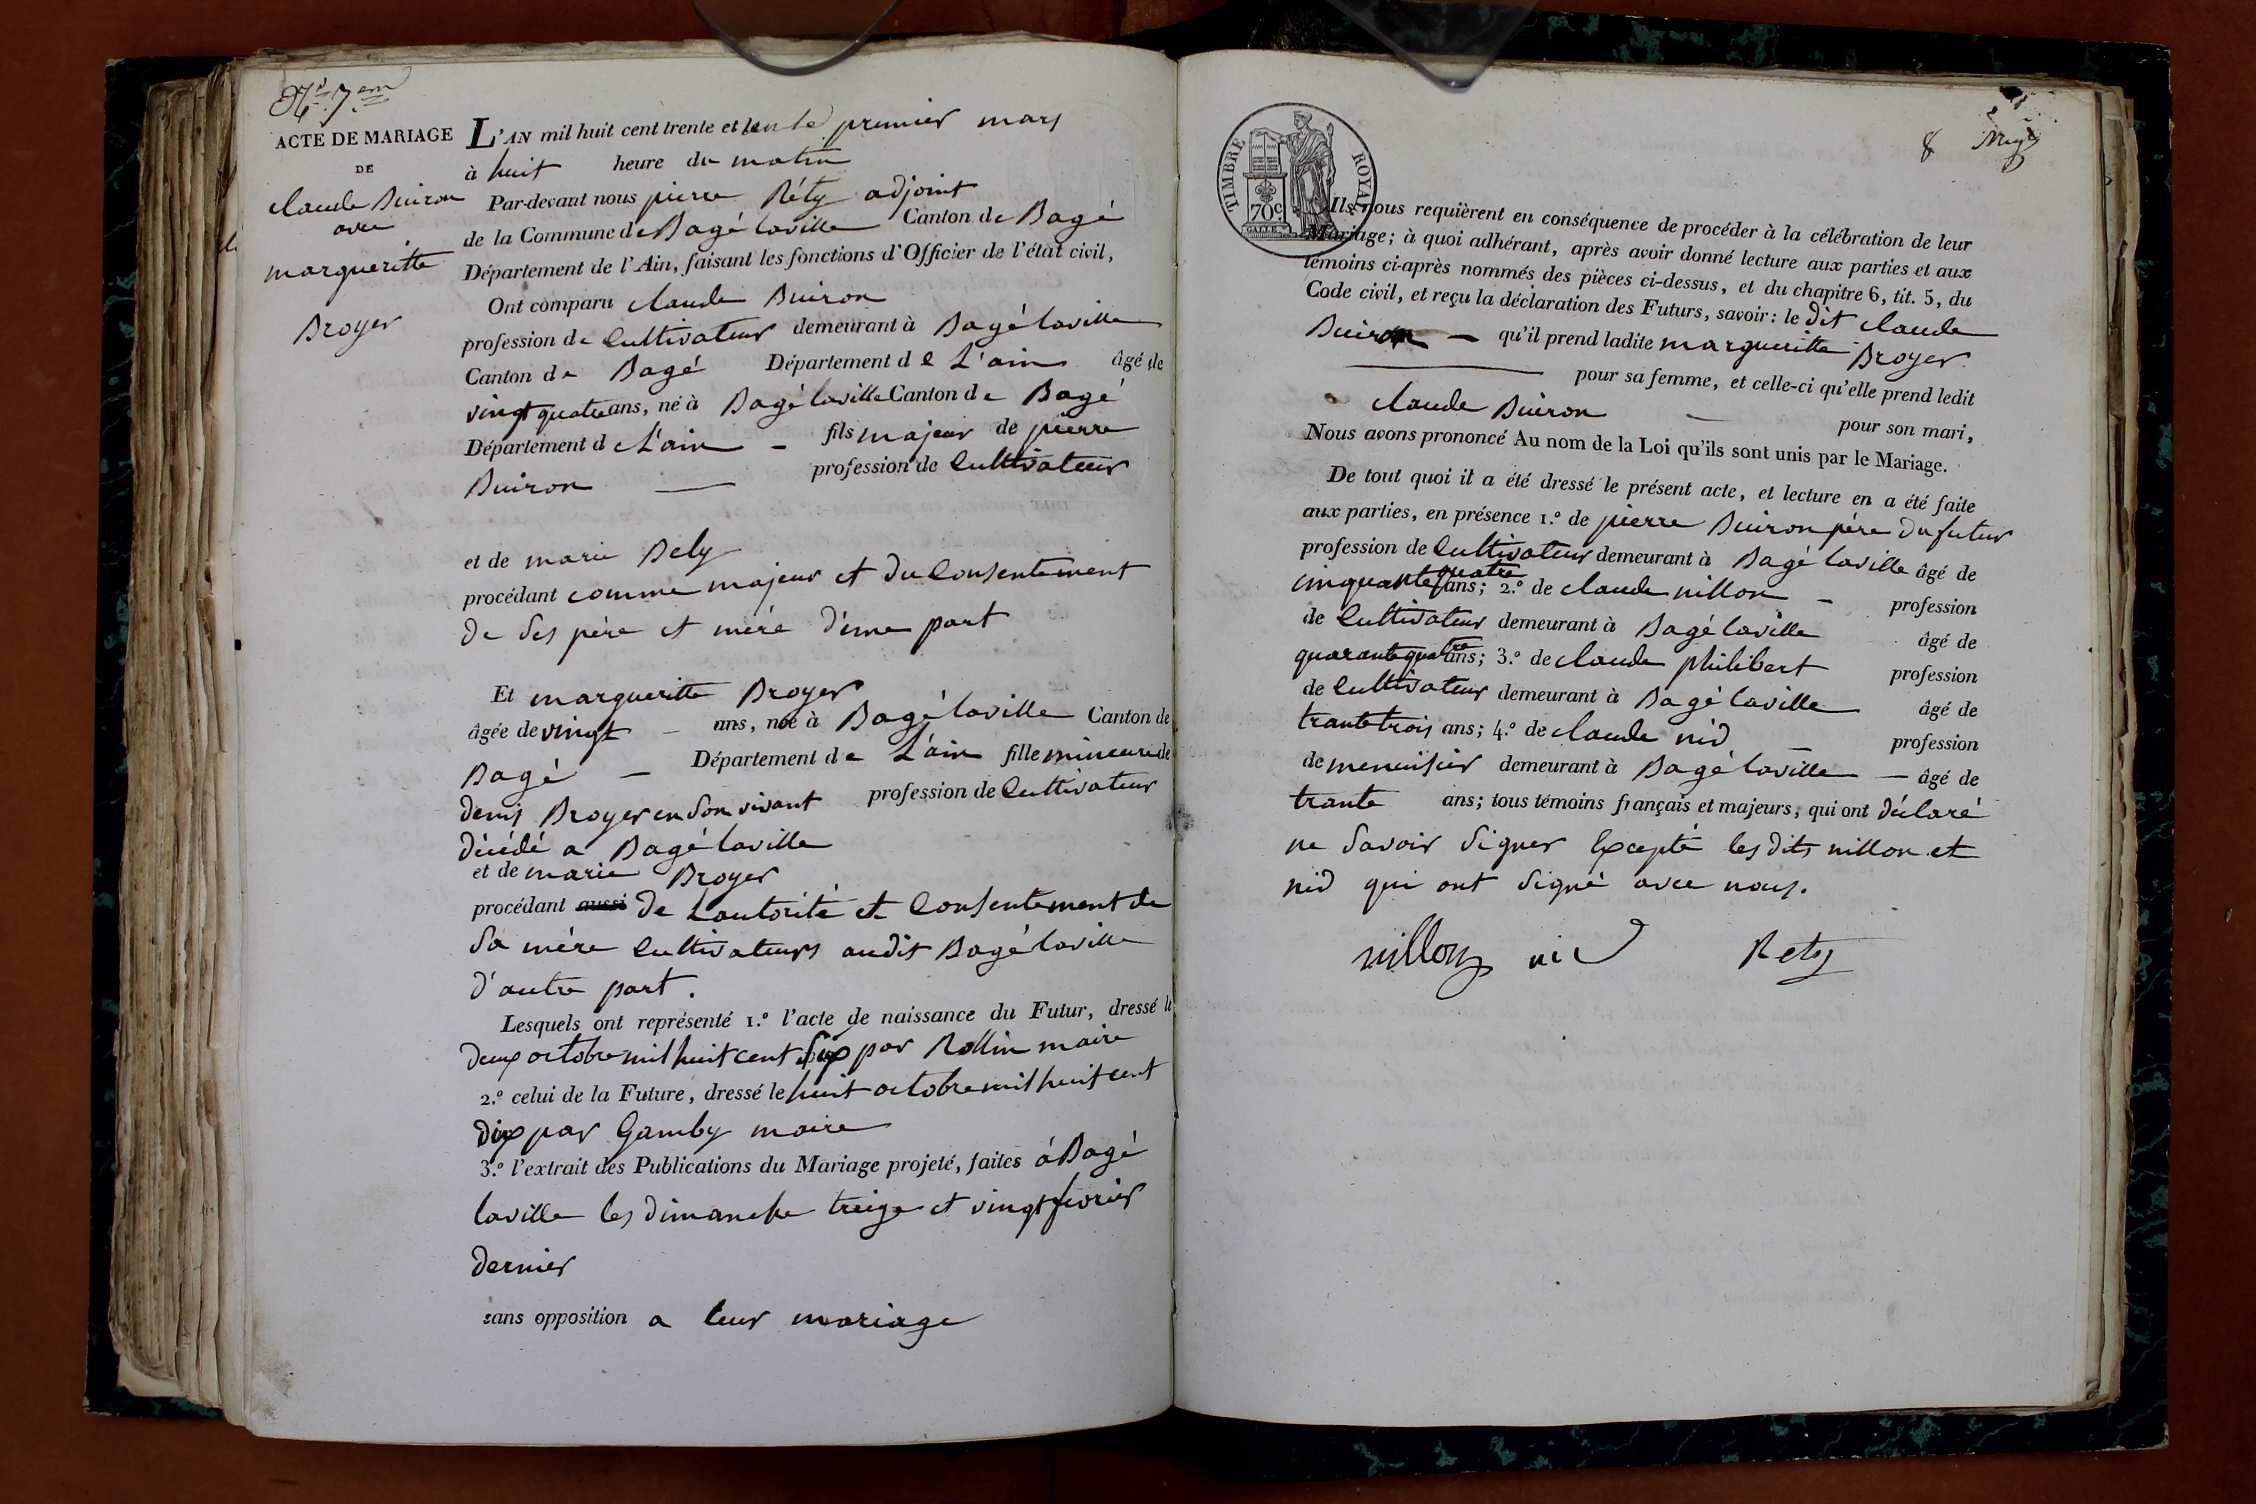 N.° 7.em
ACTE DE MARIAGE
DE
claude Buiron
avec
margueritte
Broyer
L'AN mil huit cent trente et un le premier mars
à huit heure du matin
Par-devant nous pierre Réty adjoint
de la Commune de Bagé laville Canton de Bagé
Département de l'Ain, faisant les fonctions d'Officier de l'état civil,
Ont comparu claude Buiron
profession de Cultivateur demeurant à Bagé laville
Canton de Bagé Département de L'ain âgé de
vingt quatre ans, né à Bagé laville Canton de Bagé
Département de L'ain - fils majeur de pierre
Buiron — profession de Cultivateur
et de marie Bely
procédant comme majeur et du Consentement
de ses père et mère d'une part
Et margueritte Broyer
âgée de vingt - ans, née à Bagé laville Canton de
Bagé - Département de L'ain fille mineure de
denis Broyer en son vivant profession de Cultivateur
décédé a Bagé laville
et de marie Broyer
procédant aussi de Lautorité et Consentement de
sa mère Cultivateurs audit Bagé laville
d'autre part.
Lesquels ont représenté 1.° l'acte de naissance du Futur, dressé le
deux octobre mil huit cent six par Rollin maire
2.° celui de la Future, dressé le huit octobre mil huit cent
dix par Gamby maire
3.° l'extrait des Publications du Mariage projeté, faites à Bagé
laville les dimanche treize et vingt fevrier
dernier
sans opposition a leur mariage
8
TIMBRE ROYAL
70c
Ils nous requièrent en conséquence de procéder à la célébration de leur
Mariage; à quoi adhérant, après avoir donné lecture aux parties et aux
témoins ci-après nommés des pièces ci-dessus, et du chapitre 6, tit. 5, du
Code civil, et reçu la déclaration des Futurs, savoir: le dit claude
Buiron - qu'il prend ladite margueritte Broyer
— pour sa femme, et celle-ci qu'elle prend ledit
claude Buiron - pour son mari,
Nous avons prononcé Au nom de la Loi qu'ils sont unis par le Mariage.
De tout quoi il a été dressé le présent acte, et lecture en a été faite
aux parties, en présence 1.° de pierre Buiron père du futur
profession de Cultivateur demeurant à Bagé laville âgé de
cinquante quatre ans; 2.° de claude nillon - profession
de Cultivateur demeurant à Bagé laville âgé de
quarante quatre ans; 3.° de claude philibert profession
de Cultivateur demeurant à Bagé laville âgé de
trante trois ans; 4.° de claude nid - profession
de menuisier demeurant à Bagé laville — âgé de
trante ans; tous témoins français et majeurs, qui ont déclaré
ne savoir signer Excepté les dits nillon et
nid qui ont signé avec nous.
nillon nid Rety